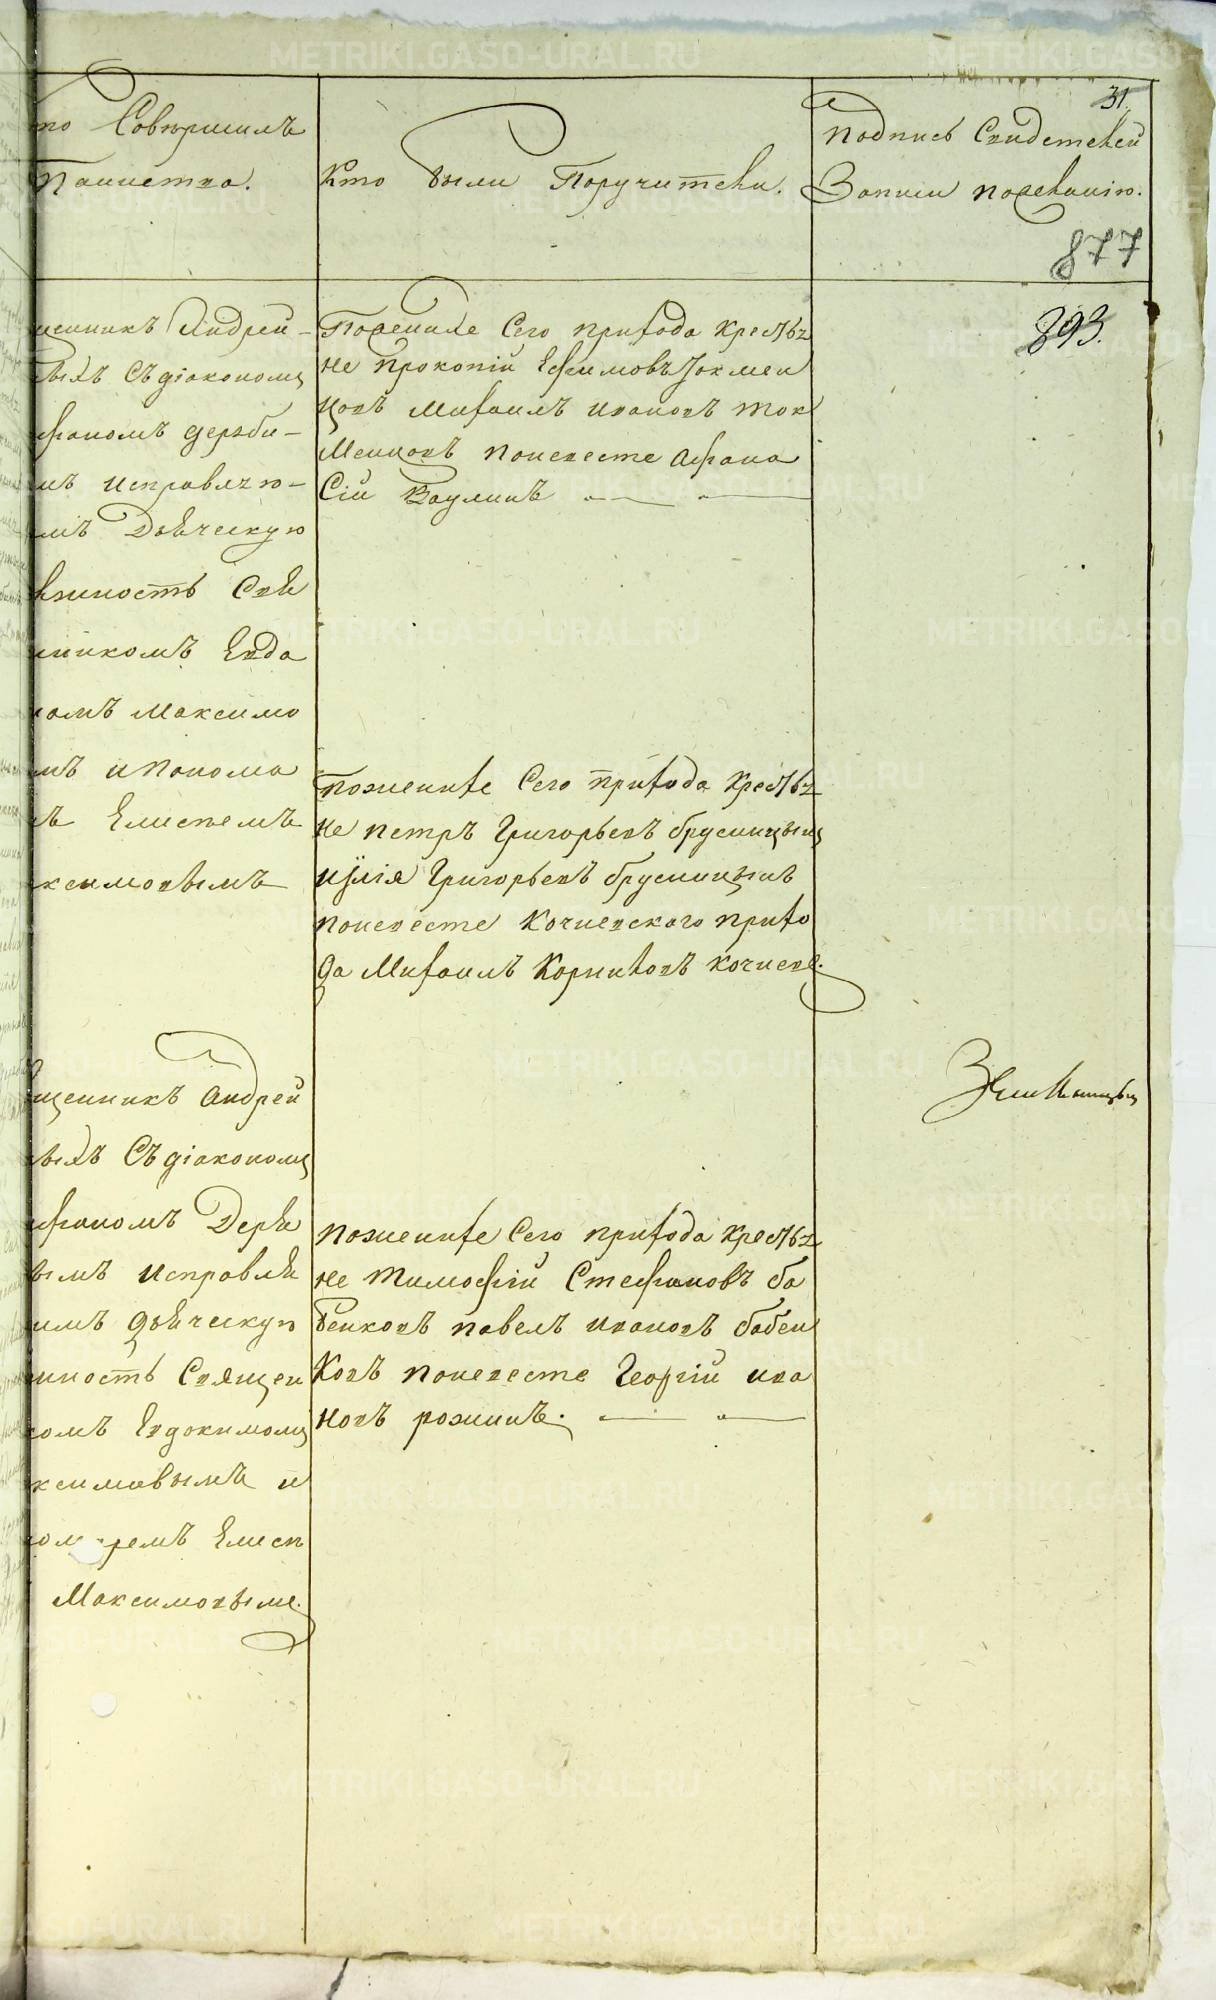 31.
то Совершилъ
Таинства.
Кто были Поручители.
Подпись Свидетелей
Записи по желанію.
877
893.
щенникъ Андрей
выхъ Съ діакономъ
фаномъ деряби-
мъ исправляю-
имъ Дьяческую
лжность Свя
нникомъ Евдо
момъ Максимо
мъ и Понома
ъ Елисеемъ
ксимовымъ
По женихе Сего прихода крестья
не Прокопій Ефимовъ Токмен
цовъ Михаилъ Ивановъ Ток
Менцовъ По невесте Афана
Сій Ваулинъ
По женихе Сего прихода крестья
не Петръ Григорьевъ брусницынъ
Илія Григорьевъ брусницынъ
По невесте Кочневского прихо
да Михаилъ Корниловъ Кочнев.
щенникъ Андрей
выхъ Съ діакономъ
фаномъ Деря
нымъ Исправля
имъ дьяческую
жность Священ
комъ Евдокимомъ
ксимовымъ и
омаремъ Елисе
Максимовымъ.
По женихе Сего прихода крестья
не Тимофій Стефановъ ба
бенковъ павелъ ивановъ бабен
Ковъ По невесте Георгій ива
новъ рожинъ.